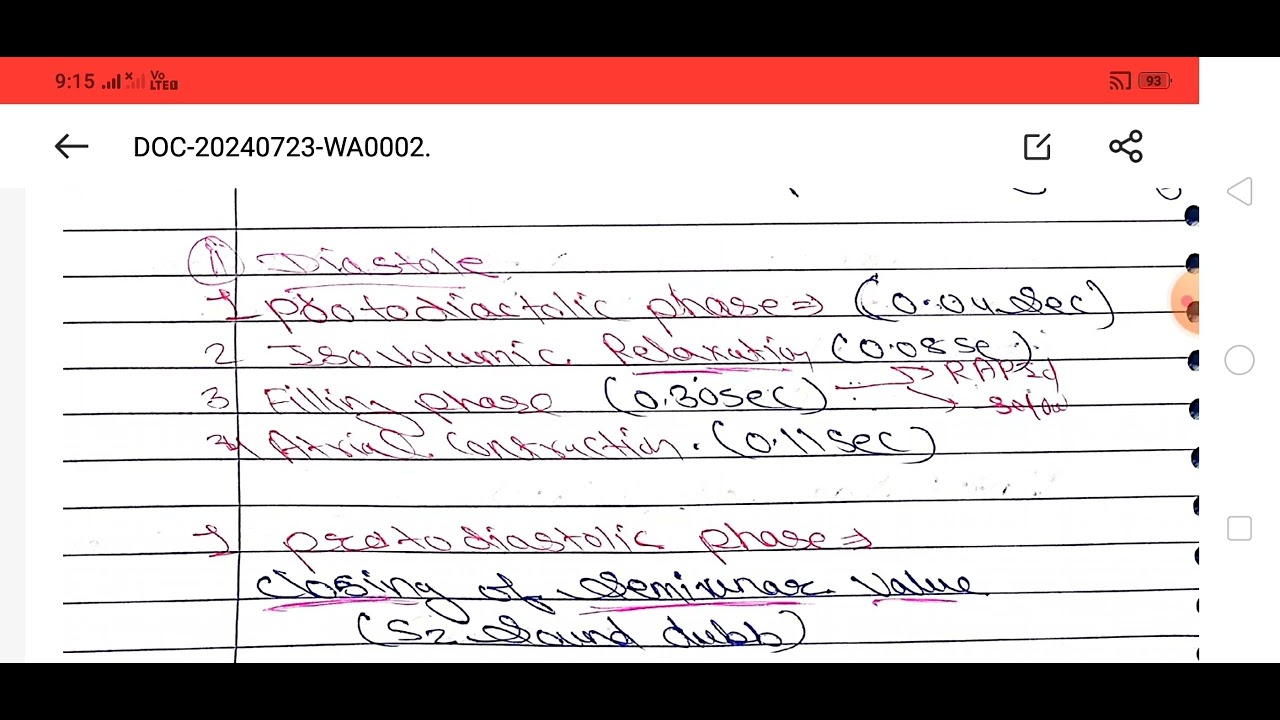 9:15 Vo LTE 93
DOC-20240723-WA0002.
ii Diastole
1 protodiactolic phase ⇒ (0.04 sec)
2 Isovolumic Relaxation (0.08 se)
3 Filling phase (0.30sec) → RAPId
→ slow
4 Atrial contraction. (0.11sec)
1 protodiastolic phase ⇒
closing of semilunar value
(S2 sound dubb)